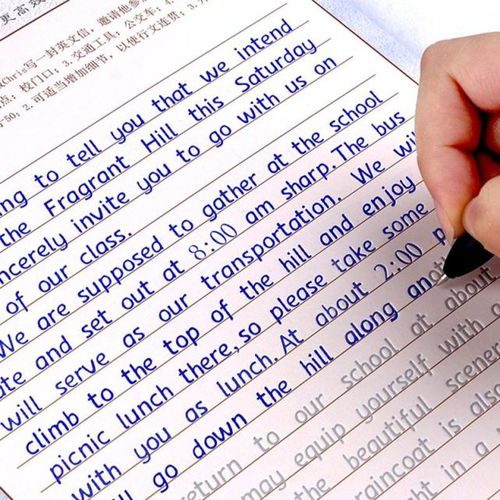 更高效
Chris写一封英文信，邀请他参
点：校门口；3.交通工具：公交车；4.
2.可适当增加细节，以使行文连贯；3.
to tell you that we intend
the Fragrant Hill this Saturday
invite you to go with us on
of our class.
We are supposed to gather at the school
and set out at 8:00 am sharp. The bus
will serve as our transportation. We
climb to the top of the hill and enjoy
picnic lunch there, so please take some
with you as lunch. At about 2:00
go down the hill along
return to our school at about
may equip yourself with
the beautiful
raincoat is
in a